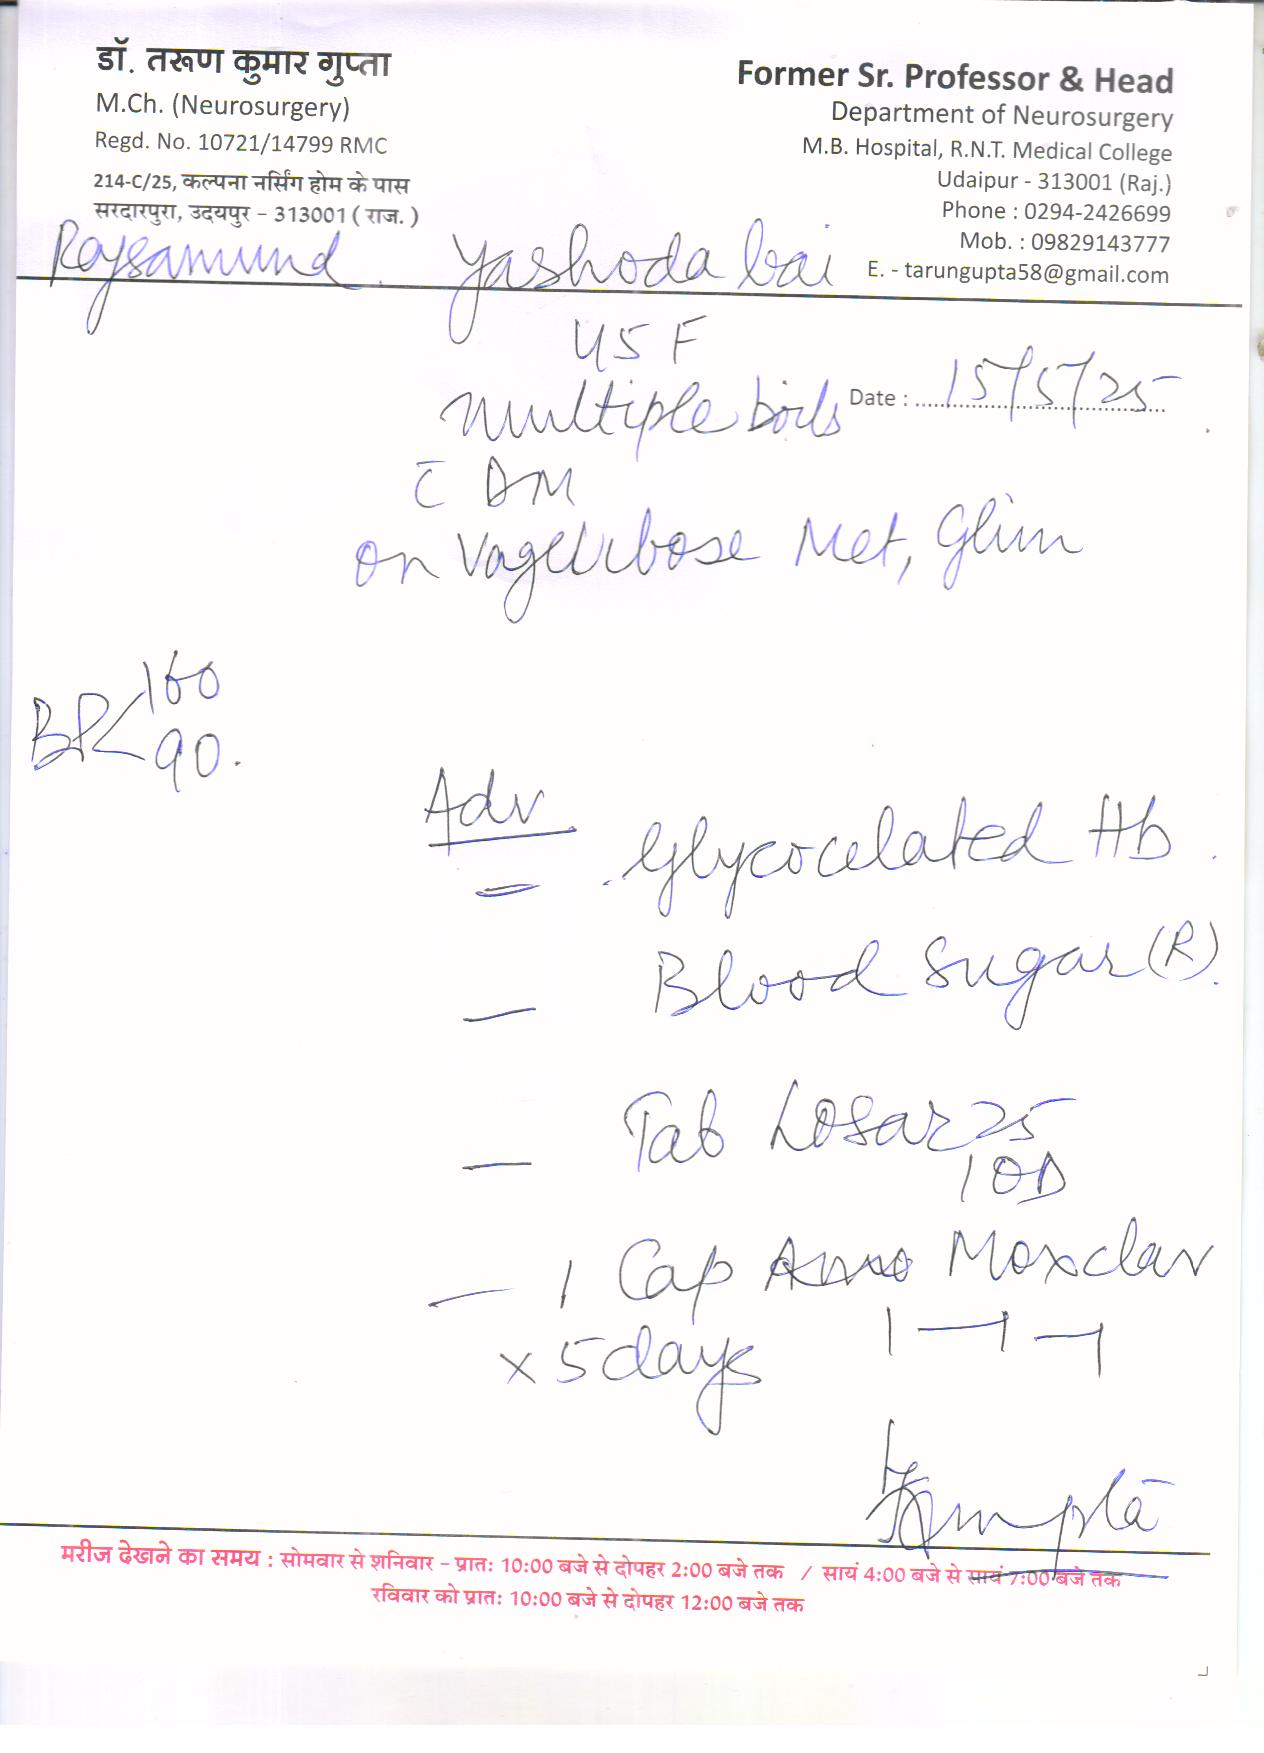 डॉ. तरूण कुमार गुप्ता
M.Ch. (Neurosurgery)
Regd. No. 10721/14799 RMC
214-C/25, कल्पना नर्सिंग होम के पास
सरदारपुरा, उदयपुर – 313001 ( राज. )
Former Sr. Professor & Head
Department of Neurosurgery
M.B. Hospital, R.N.T. Medical College
Udaipur - 313001 (Raj.)
Phone : 0294-2426699
Mob. : 09829143777
E. - tarungupta58@gmail.com
Rajsamund Yashoda bai
45 F
Date : 15/5/25
multiple boils
c̄ DM
on Vaglibose Met, Glim
BP 160
90.
Adv
– Glycocelated Hb
– Blood Sugar (R)
– Tab Losar 25
1 OD
– 1 Cap Moxclav
1 – 1 – 1
x 5 days
मरीज देखने का समय : सोमवार से शनिवार – प्रातः 10:00 बजे से दोपहर 2:00 बजे तक / सायं 4:00 बजे से सायं 7:00 बजे तक
रविवार को प्रातः 10:00 बजे से दोपहर 12:00 बजे तक